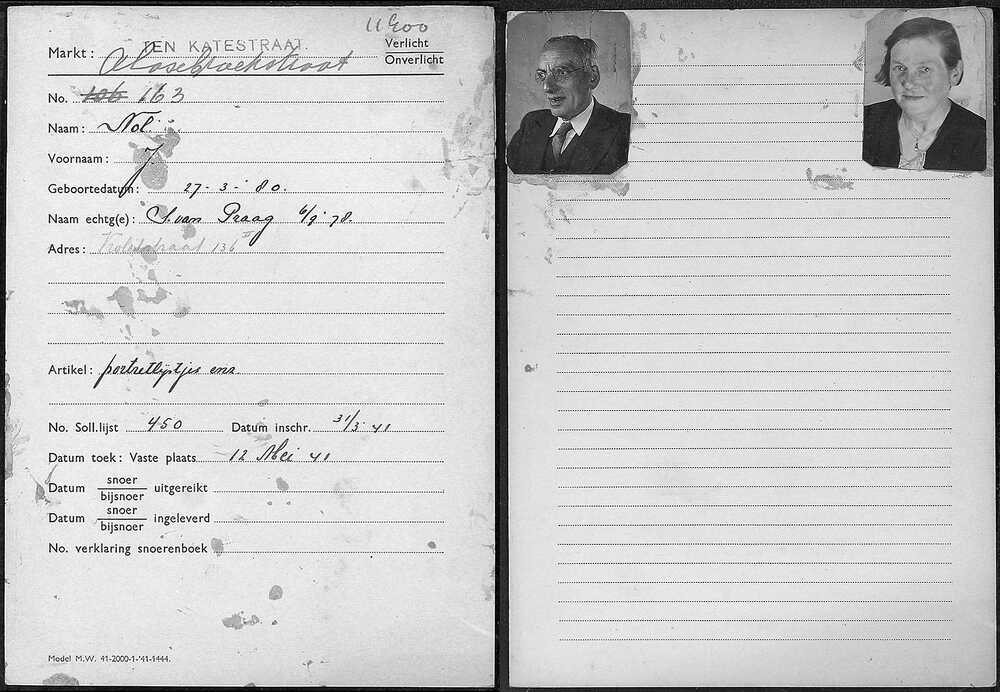 11900
Markt: TEN KATESTRAAT. Verlicht
Onverlicht
No. 106 163
Naam: Nol.
Voornaam: J.
Geboortedatum: 27-3-80.
Naam echtg(e): S. van Praag 6/9 78.
Adres: 136 II
Artikel: portretlijstjes enz.
No. Soll.lijst 450 Datum inschr. 31/3 41
Datum toek: Vaste plaats 12 Mei 41
Datum snoer
bijsnoer uitgereikt
Datum snoer
bijsnoer ingeleverd
No. verklaring snoerenboek
Model M.W. 41-2000-1-'41-1444.